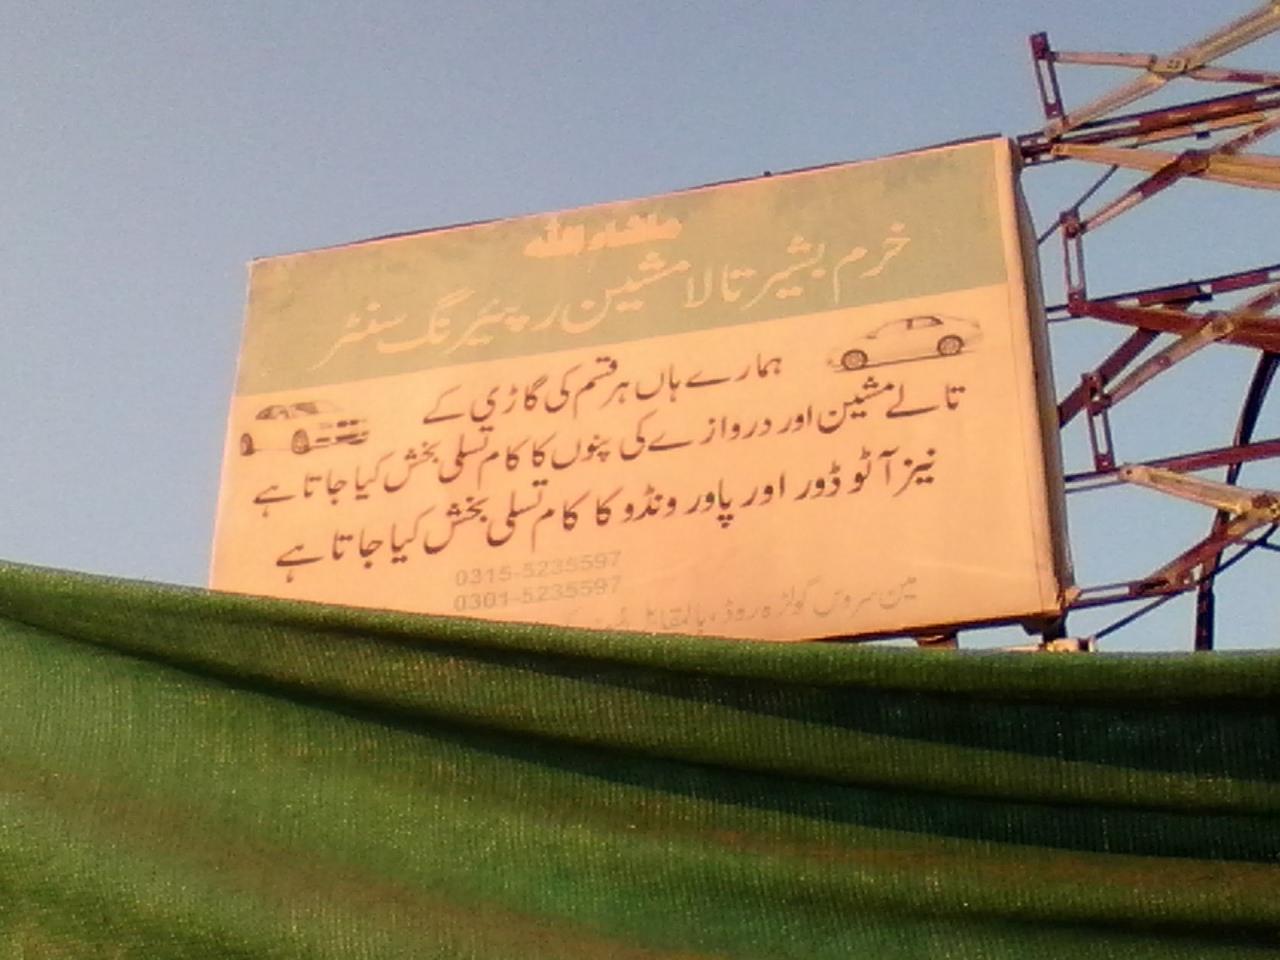 ماشاء اللہ
خرم بشیر تالا مشین رپیئرنگ سنٹر
ہمارے ہاں ہر قسم کی گاڑی کے
تالے مشین اور دروازے کی پنوں کا کام تسلی بخش کیا جاتا ہے
نیز آٹو ڈور اور پاور ونڈو کا کام تسلی بخش کیا جاتا ہے
0315-5235597
0301-5235597
مین سروس گولڑہ روڈ، بالمقابل